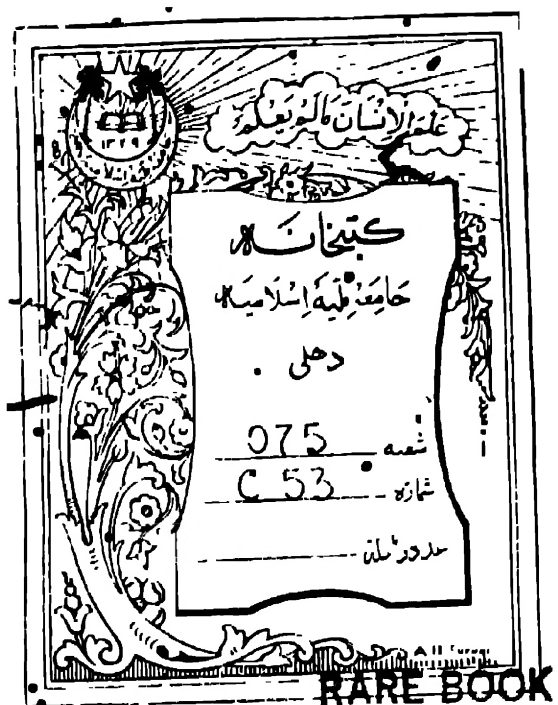 علم الانسان مالم يعلم
١٣٣٩
کتبخانہ
جامعہ ملیہ اسلامیہ
دھلی
شعبه 075
شمارہ C 53
RARE BOOK